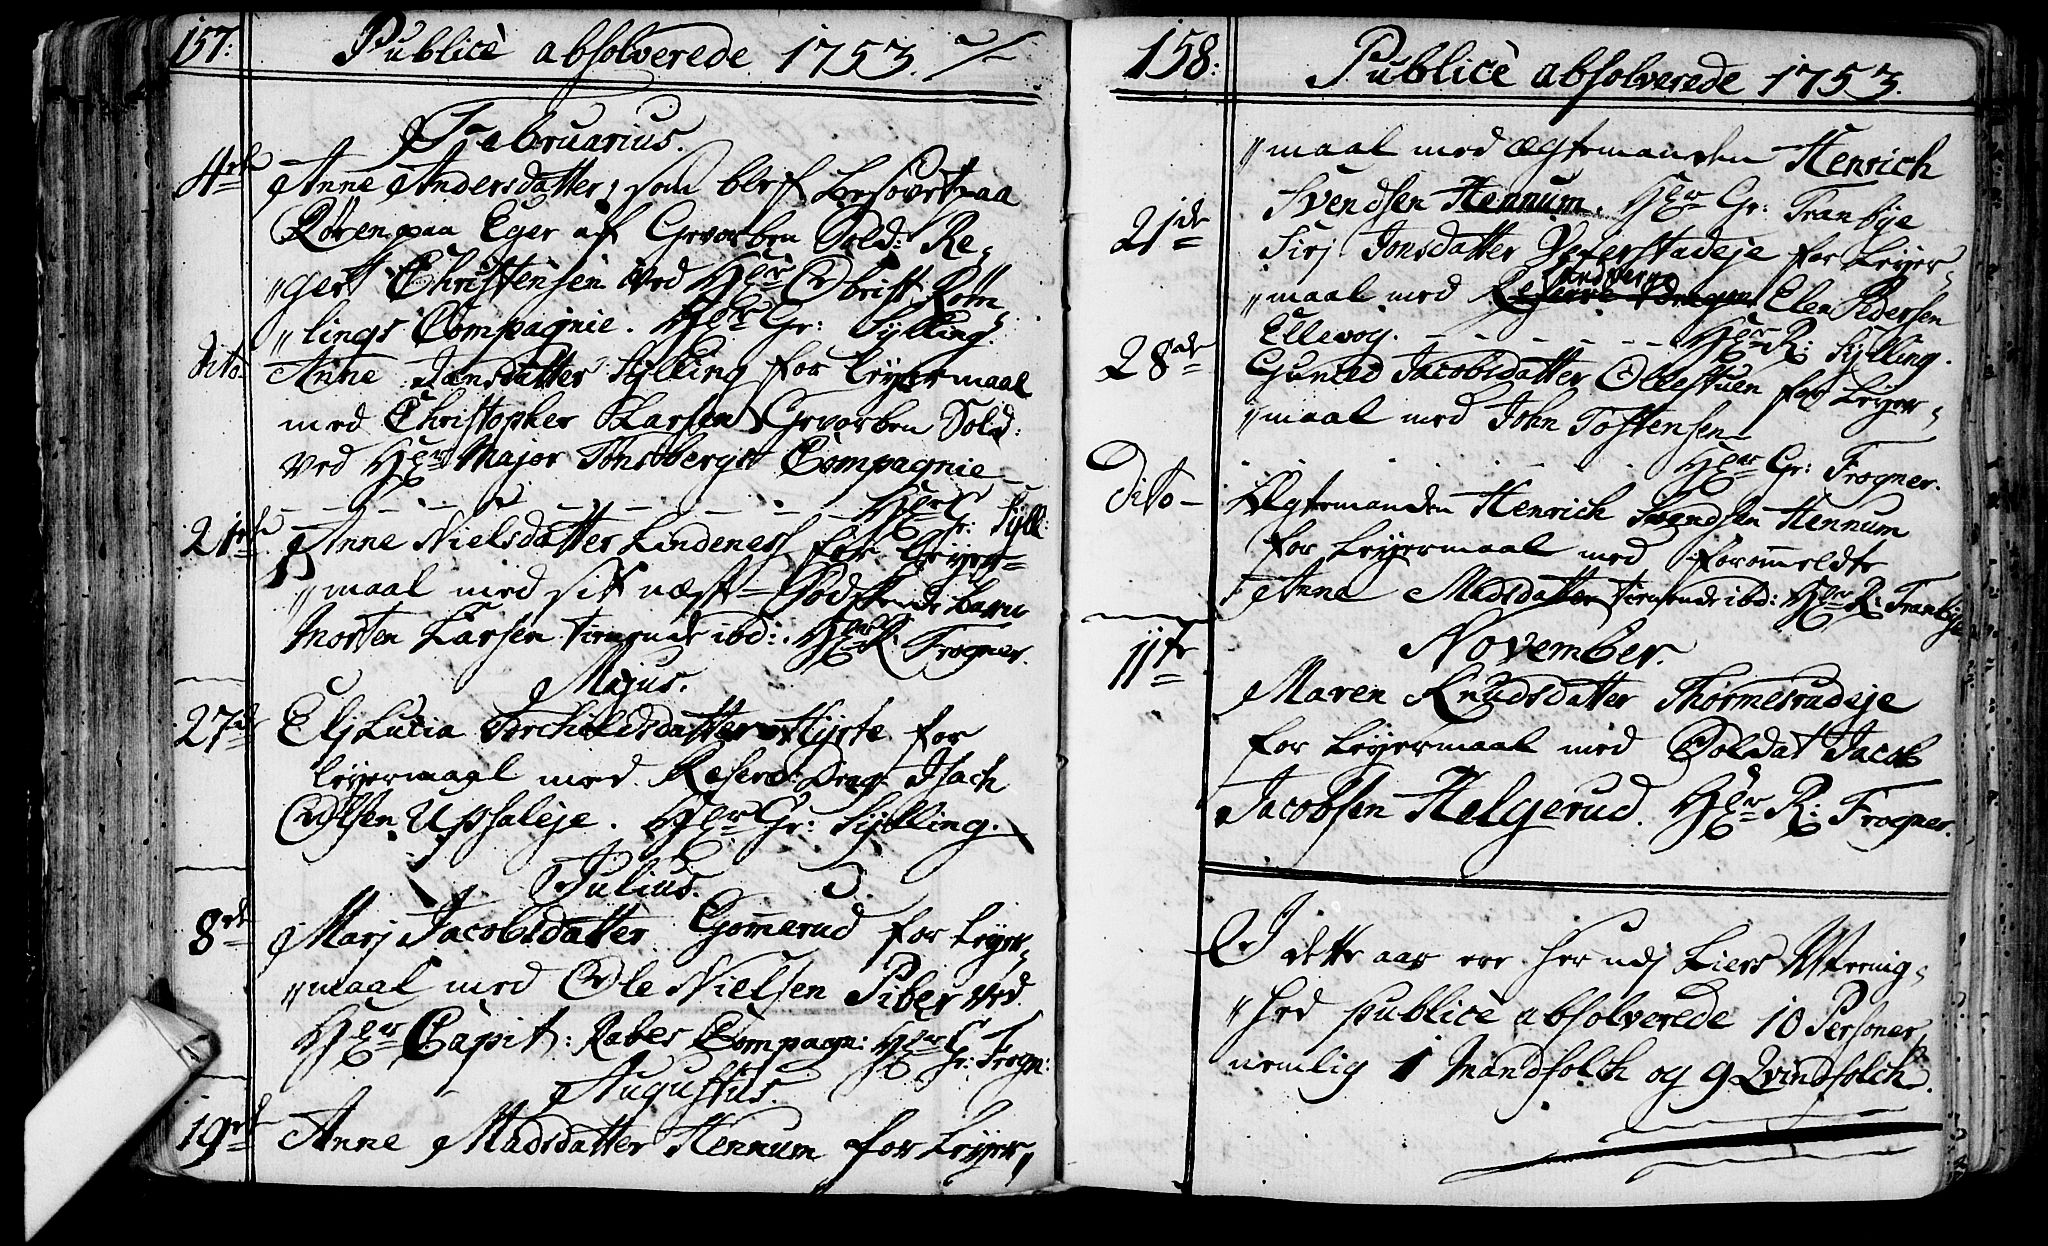 157:
Publicè absolverede 1753.
Februarius.
4de Anne Andersdatter, som blef besovet paa
Røren paa Eger af Gevorben Sold: Re-
"gert Christensen ved Hr Obrist Røm-
"lings Compagnie. Hr Gr: Sylling.
dito Anne Jansdatter Sylling for Leyermaal
med Christopher Larsen Gevorben Sold:
ved Hr Major Tonsbergs Compagnie
Hr Gr: Syll:
21de Anne Nielsdatter Lindenes for Leyer-
"maal med sit næst-Sødskende barn
Morten Larsen tienende ibd: Hr R: Frogner.
Majus.
27de Elj Lucia Torchildsdatter Hyrte for
Leyermaal med Reserv: Drag: Isach
Olsen Upsaleje. Hr Gr: Sylling.
Julius.
8de Marj Jacobsdatter Gommerud for Leyer-
"maal med Ole Nielsen Piber ved
Hr Capit: Rabes Compagn: Hr Gr: Frogn:
Augustus.
19de Anne Madsdatter Hennum for Leyer-
158:
Publicè absolverede 1753.
"maal med Ægtemanden Henrich
Svendsen Hennum. Hr Gr: Tranbye
21de Sirj Jonsdatter for Leyer-
Landvern
"maal med Reserve Dragon Elen Pedersen
Ellevog. Hr R: Sylling.
28de Gunild Jacobsdatter Ollestuen for Leyer-
"maal med John Tostensen
Hr Gr: Frogner.
Dito Ægtemanden Henrich Svendsen Hennum
for Leyermaal med formeldte
Anne Madsdatter tienende ibd: Hr R: Tranbye
November.
11te Maren Knudsdatter Thørmesrudeje
for Leyermaal med Soldat Jacob
Jacobsen Helgerud. Hr R: Frogner.
I dette aar ere her udj Liers Meenig-
"hed publicè absolverede 10 Personer,
nemlig 1 Mandfolch og 9 Qvindfolch.